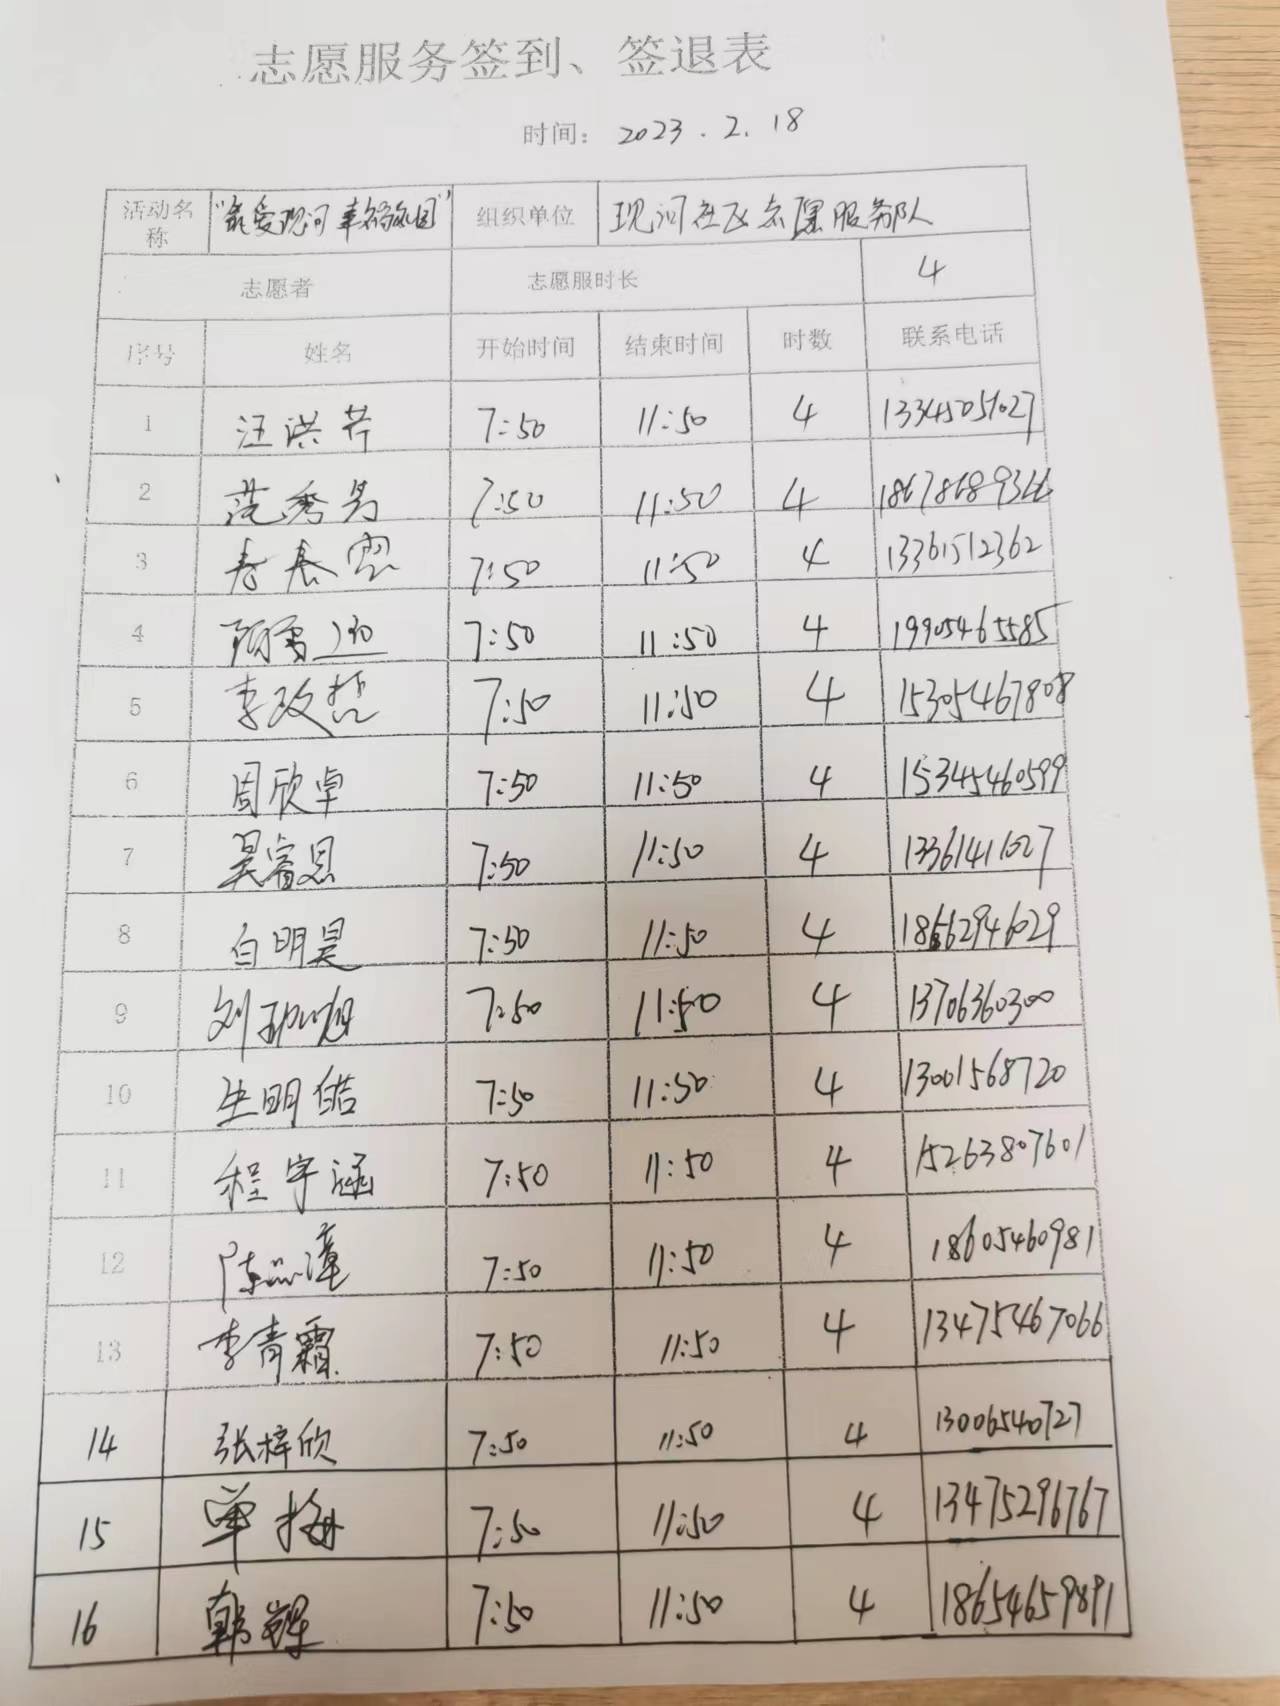 志愿服务签到、签退表
时间： 2023.2.18
活动名称 "最爱现河 幸福家园" 组织单位 现河社区志愿服务队
志愿者 志愿服时长 4
序号 姓名 开始时间 结束时间 时数 联系电话
1 汪洪芹 7:50 11:50 4 13345051027
2 范秀 7:50 11:50 4 18678689366
3 春 7:50 11:50 4 13361512362
4 7:50 11:50 4 19905465585
5 李政哲 7:50 11:50 4 15305467808
6 周欣卓 7:50 11:50 4 15345460599
7 吴睿恩 7:50 11:50 4 13361411027
8 白明昊 7:50 11:50 4 18662946029
9 刘 旭 7:50 11:50 4 13706360300
10 生明皓 7:50 11:50 4 13001568720
11 程宇涵 7:50 11:50 4 15263807601
12 陈品漳 7:50 11:50 4 18605460981
13 李青霜 7:50 11:50 4 13475467066
14 张梓欣 7:50 11:50 4 13006540727
15 单梅 7:50 11:50 4 13475296767
16 韩辉 7:50 11:50 4 18654659891